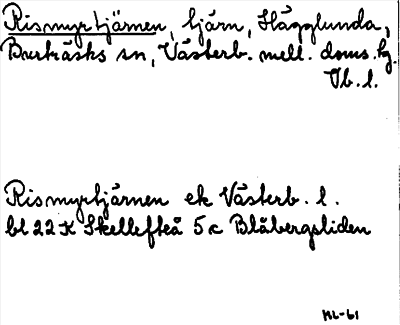 Rismyrtjärnen, tjärn, Hägglunda,
Burträsks sn, Västerb. mell. doms. hg.
Vb. l.
Rismyrtjärnen ek Västerb. l.
bl 22 K Skellefteå 5 c Blåbergsliden
ML-61